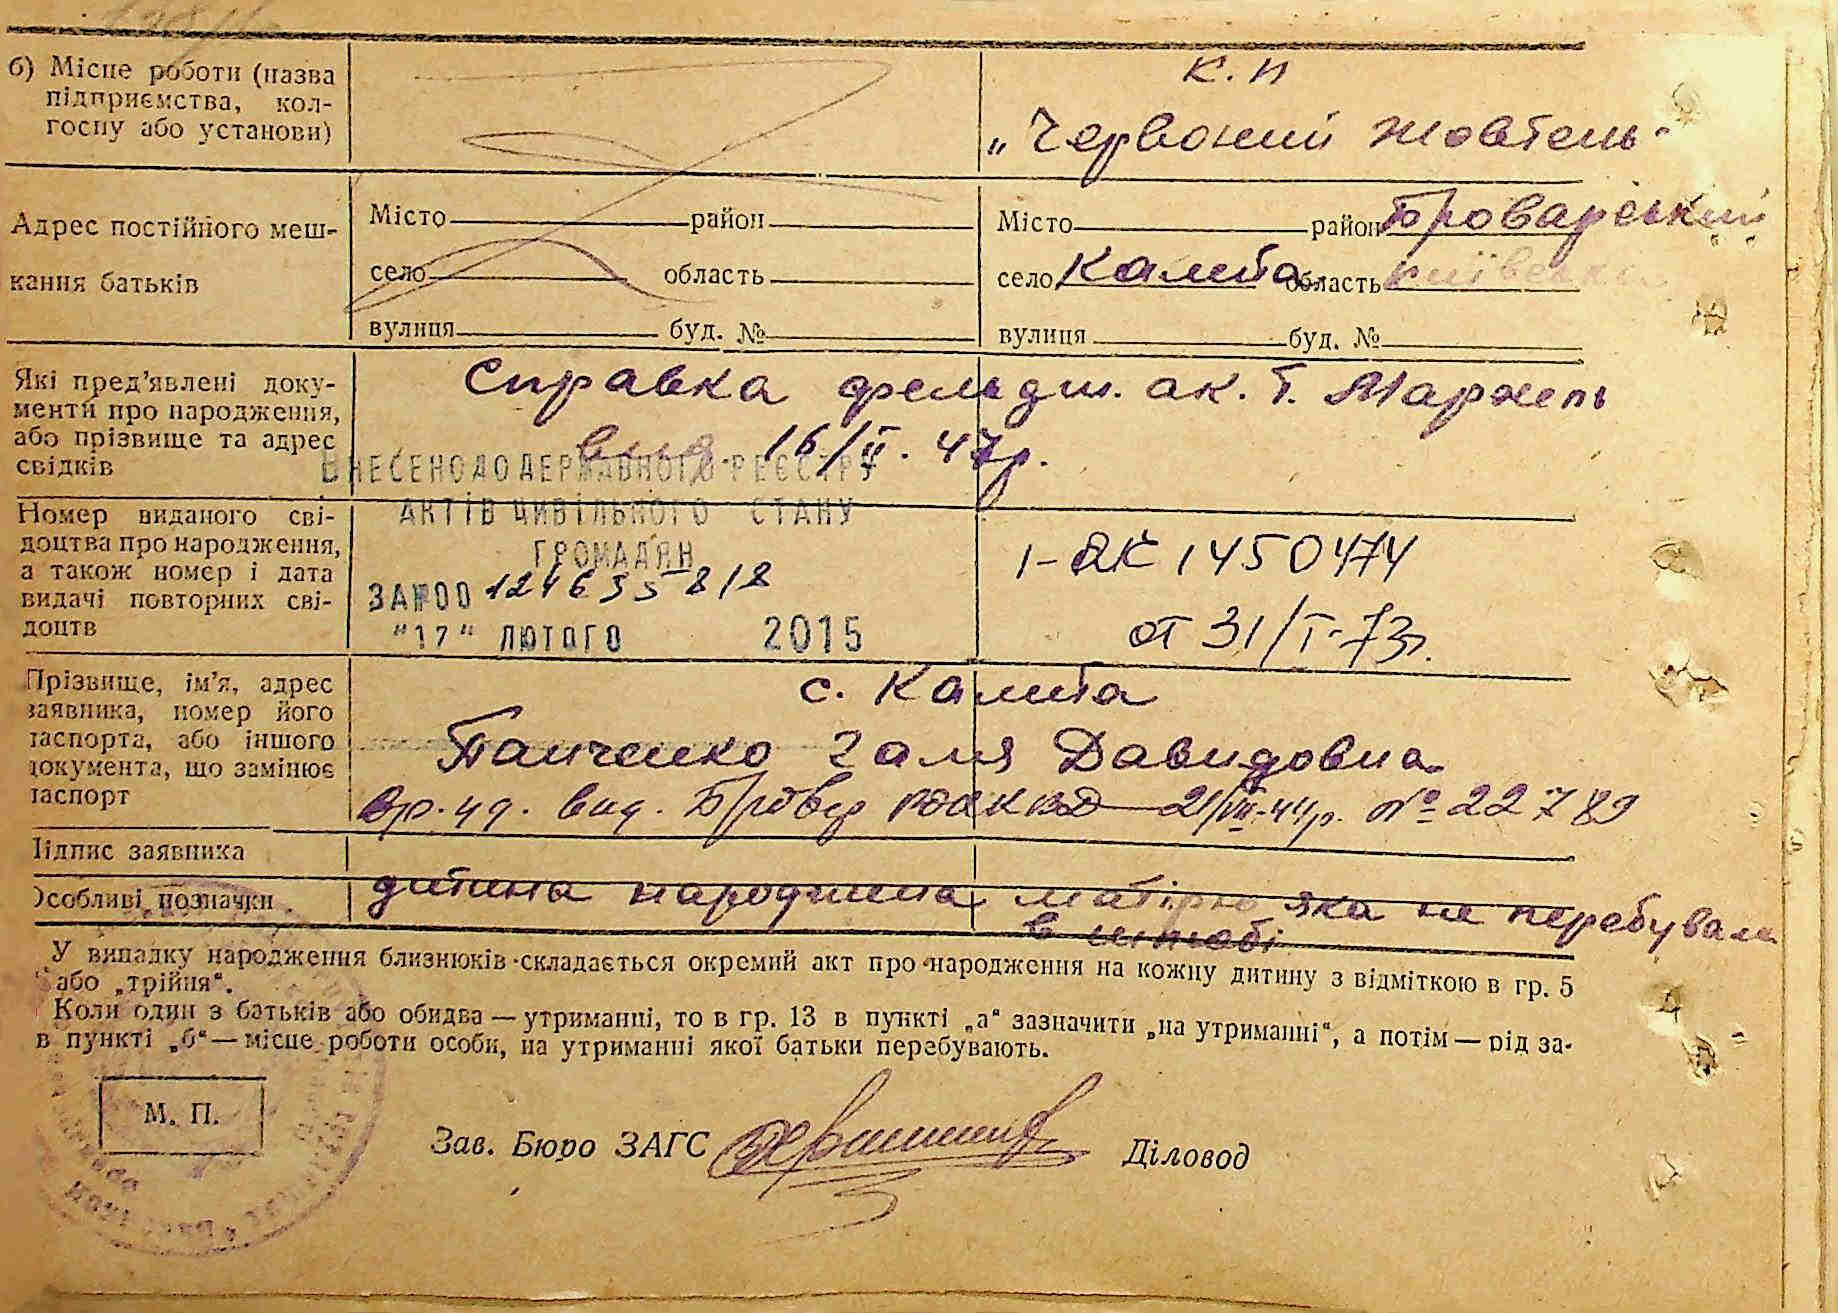 б) Місце роботи (назва
підприємства, кол-
госпу або установи)
К. п
„Червоний Жовтень"
Адрес постійного меш-
кання батьків
Місто район
село область
вулиця буд. №
Місто район Броварський
село Калита область Київська
вулиця буд. №
Які пред'явлені доку-
менти про народження,
або прізвище та адрес
свідків
Справка фельдш. ак. т.
16/II. 47р.
ВНЕСЕНО ДО ДЕРЖАВНОГО РЕЄСТРУ
АКТІВ ЦИВІЛЬНОГО СТАНУ
ГРОМАДЯН
ЗА №00 124635818
"17" ЛЮТОГО 2015
Номер виданого сві-
доцтва про народження,
а також номер і дата
видачі повторних сві-
доцтв
I-ЯК 1450474
от 31/I-73г.
Прізвище, ім'я, адрес
заявника, номер його
паспорта, або іншого
документа, що замінює
паспорт
с. Калита
Панченко Галя Давидовна
вид. №22789
Підпис заявника
Особливі позначки
дитина народжена матірю яка не перебувала
в шлюбі
У випадку народження близнюків складається окремий акт про народження на кожну дитину з відміткою в гр. 5
або „трійня".
Коли один з батьків або обидва — утриманці, то в гр. 13 в пункті „а" зазначити „на утриманні", а потім — рід за-
в пункті „б" — місце роботи особи, на утриманні якої батьки перебувають.
М. П.
Зав. Бюро ЗАГС
Діловод